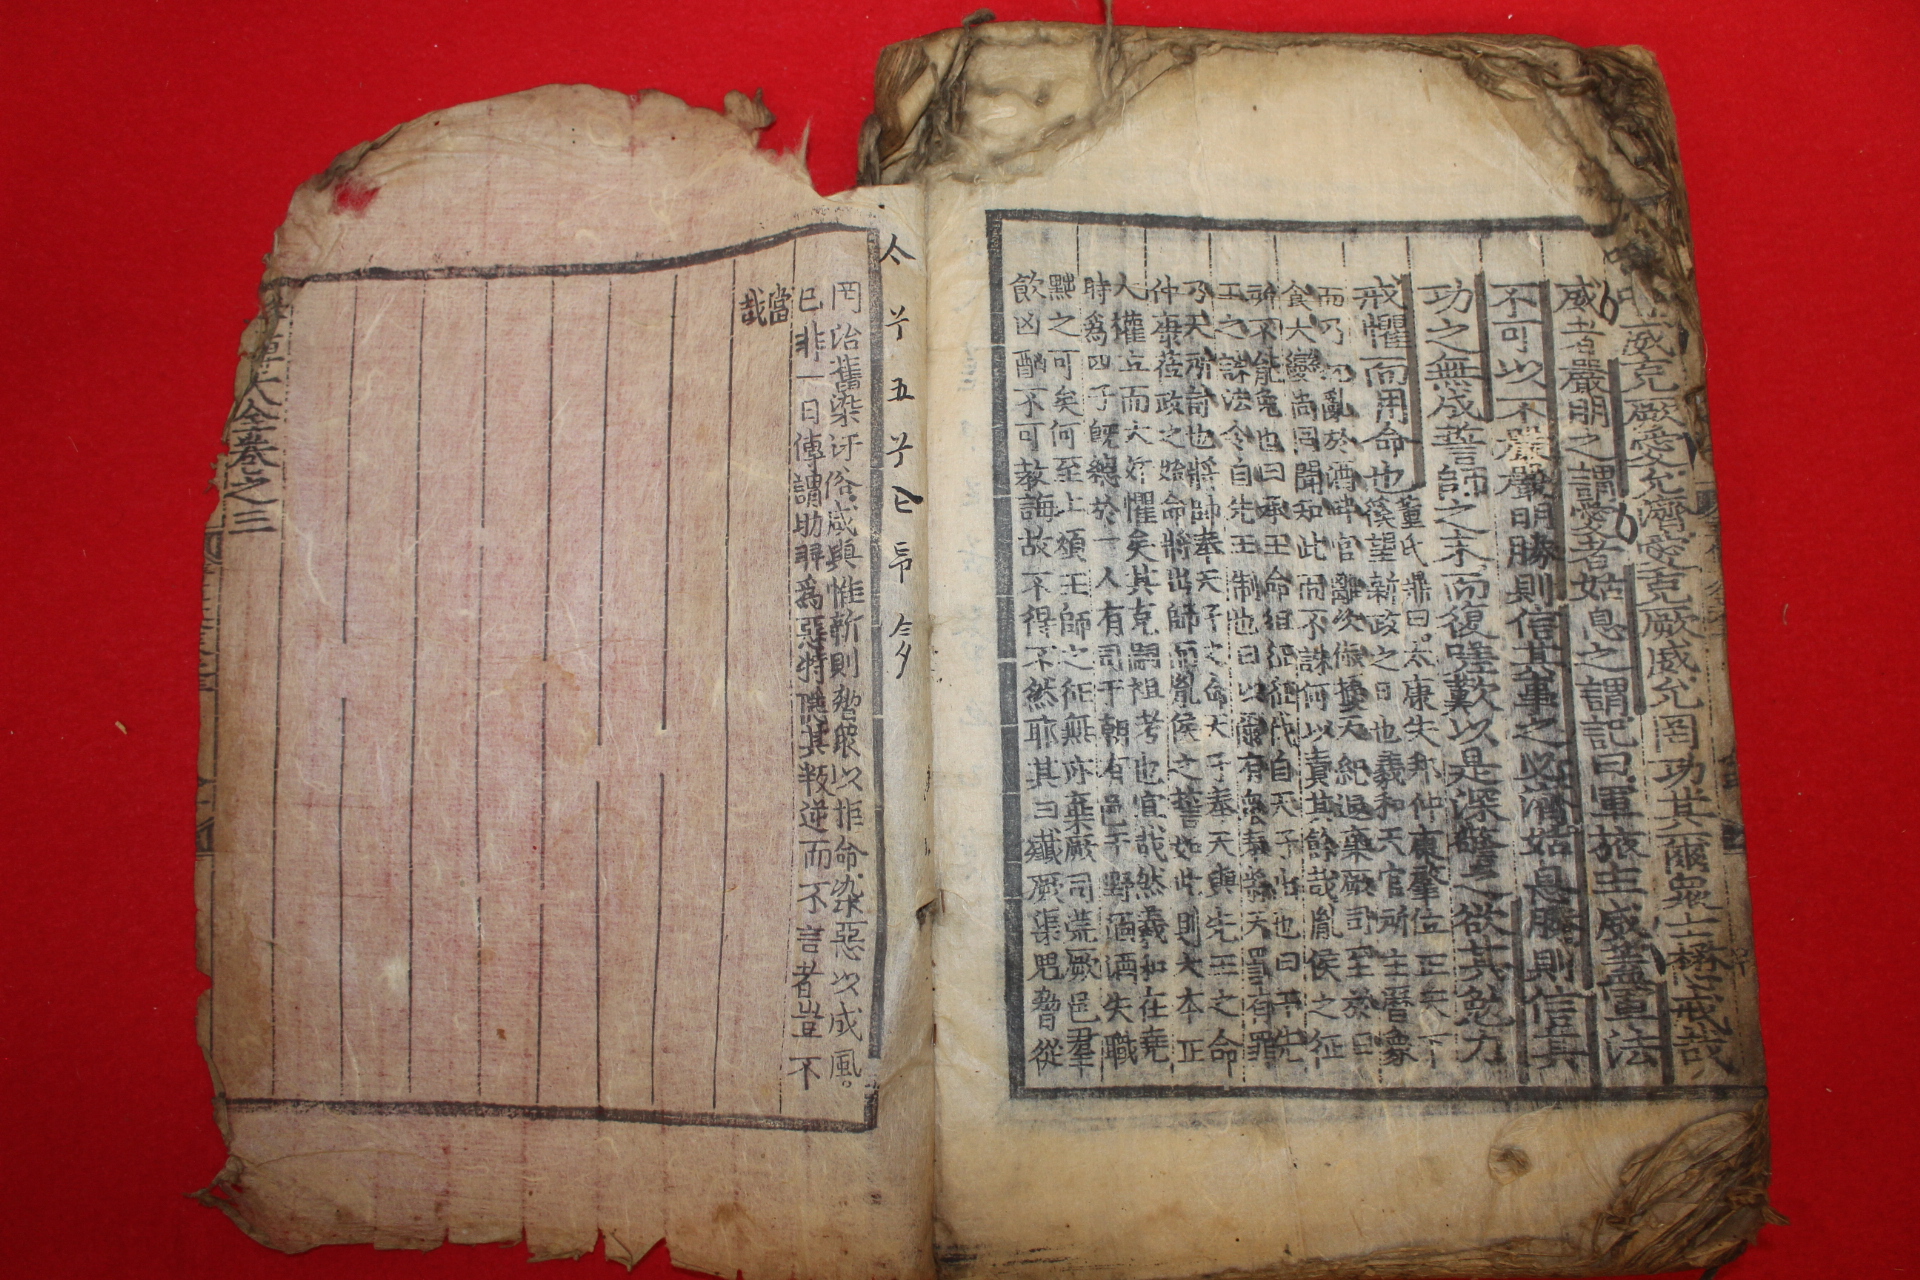 呼威克厥愛允濟愛克厥威允罔功其爾衆士懋戒哉
威者嚴明之謂愛者姑息之謂記曰軍旅主威蓋軍法
不可以不嚴嚴明勝則信其事之必濟姑息勝則信其
功之無成誓師之末而復嗟歎以是深警之欲其勉力
戒懼而用命也董氏鼎曰太康失邦仲康肇位正天下
徯望新政之日也羲和天官所主曆象
而乃沉亂於酒畔官離次俶擾天紀遐棄厥司至於日
食大變尚罔聞知此而不誅何以責其餘哉胤侯之征
所不能免也曰承王命徂征征伐自天子出也曰予先
王之謨法令自先王制也曰以爾有衆奉將天罰有罪
乃天所討也將帥奉天子之命天子奉天與先王之命
仲康莅政之始命將出師而胤侯之誓如此則大本正
人權立而大奸懼矣其克嗣祖考也宜哉然羲和在堯
時爲四子旣總於一人有司于朝有邑于野湎酒失職
黜之可矣何至上煩王師之征無亦棄厥司荒厥邑羣
飲凶酗不可敎誨故不得不然耶其曰殲厥渠魁脅從
罔治舊染汙俗咸與惟新則脅衆以拒命染惡以成風
已非一日傳謂助羿爲惡特隱其叛逆而不言者豈不
當哉
大全卷之三